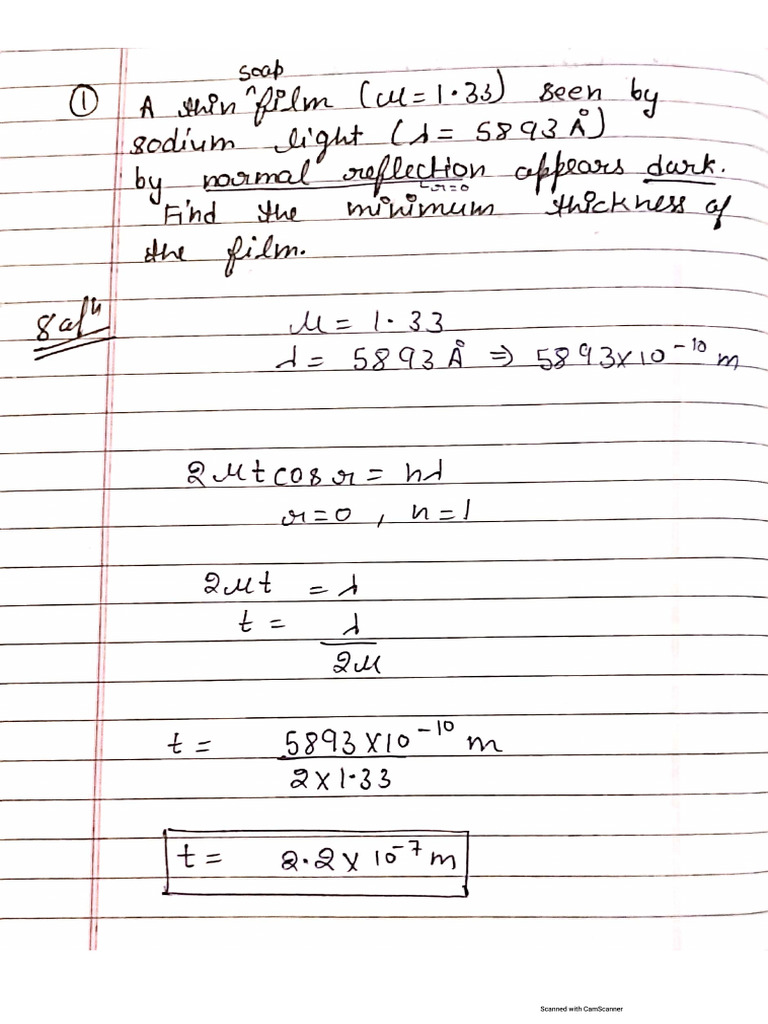 ① A thin ^soap film (μ = 1.33) seen by
sodium light (λ = 5893 Å)
by normal reflection appears dark.
↳r=0
Find the minimum thickness of
the film.
Solⁿ
μ = 1.33
λ = 5893 Å ⇒ 5893×10⁻¹⁰ m
2μt cos r = nλ
r=0 , n=1
2μt = λ
t = λ
2μ
t = 5893×10⁻¹⁰ m
2×1.33
t = 2.2×10⁻⁷ m
Scanned with CamScanner